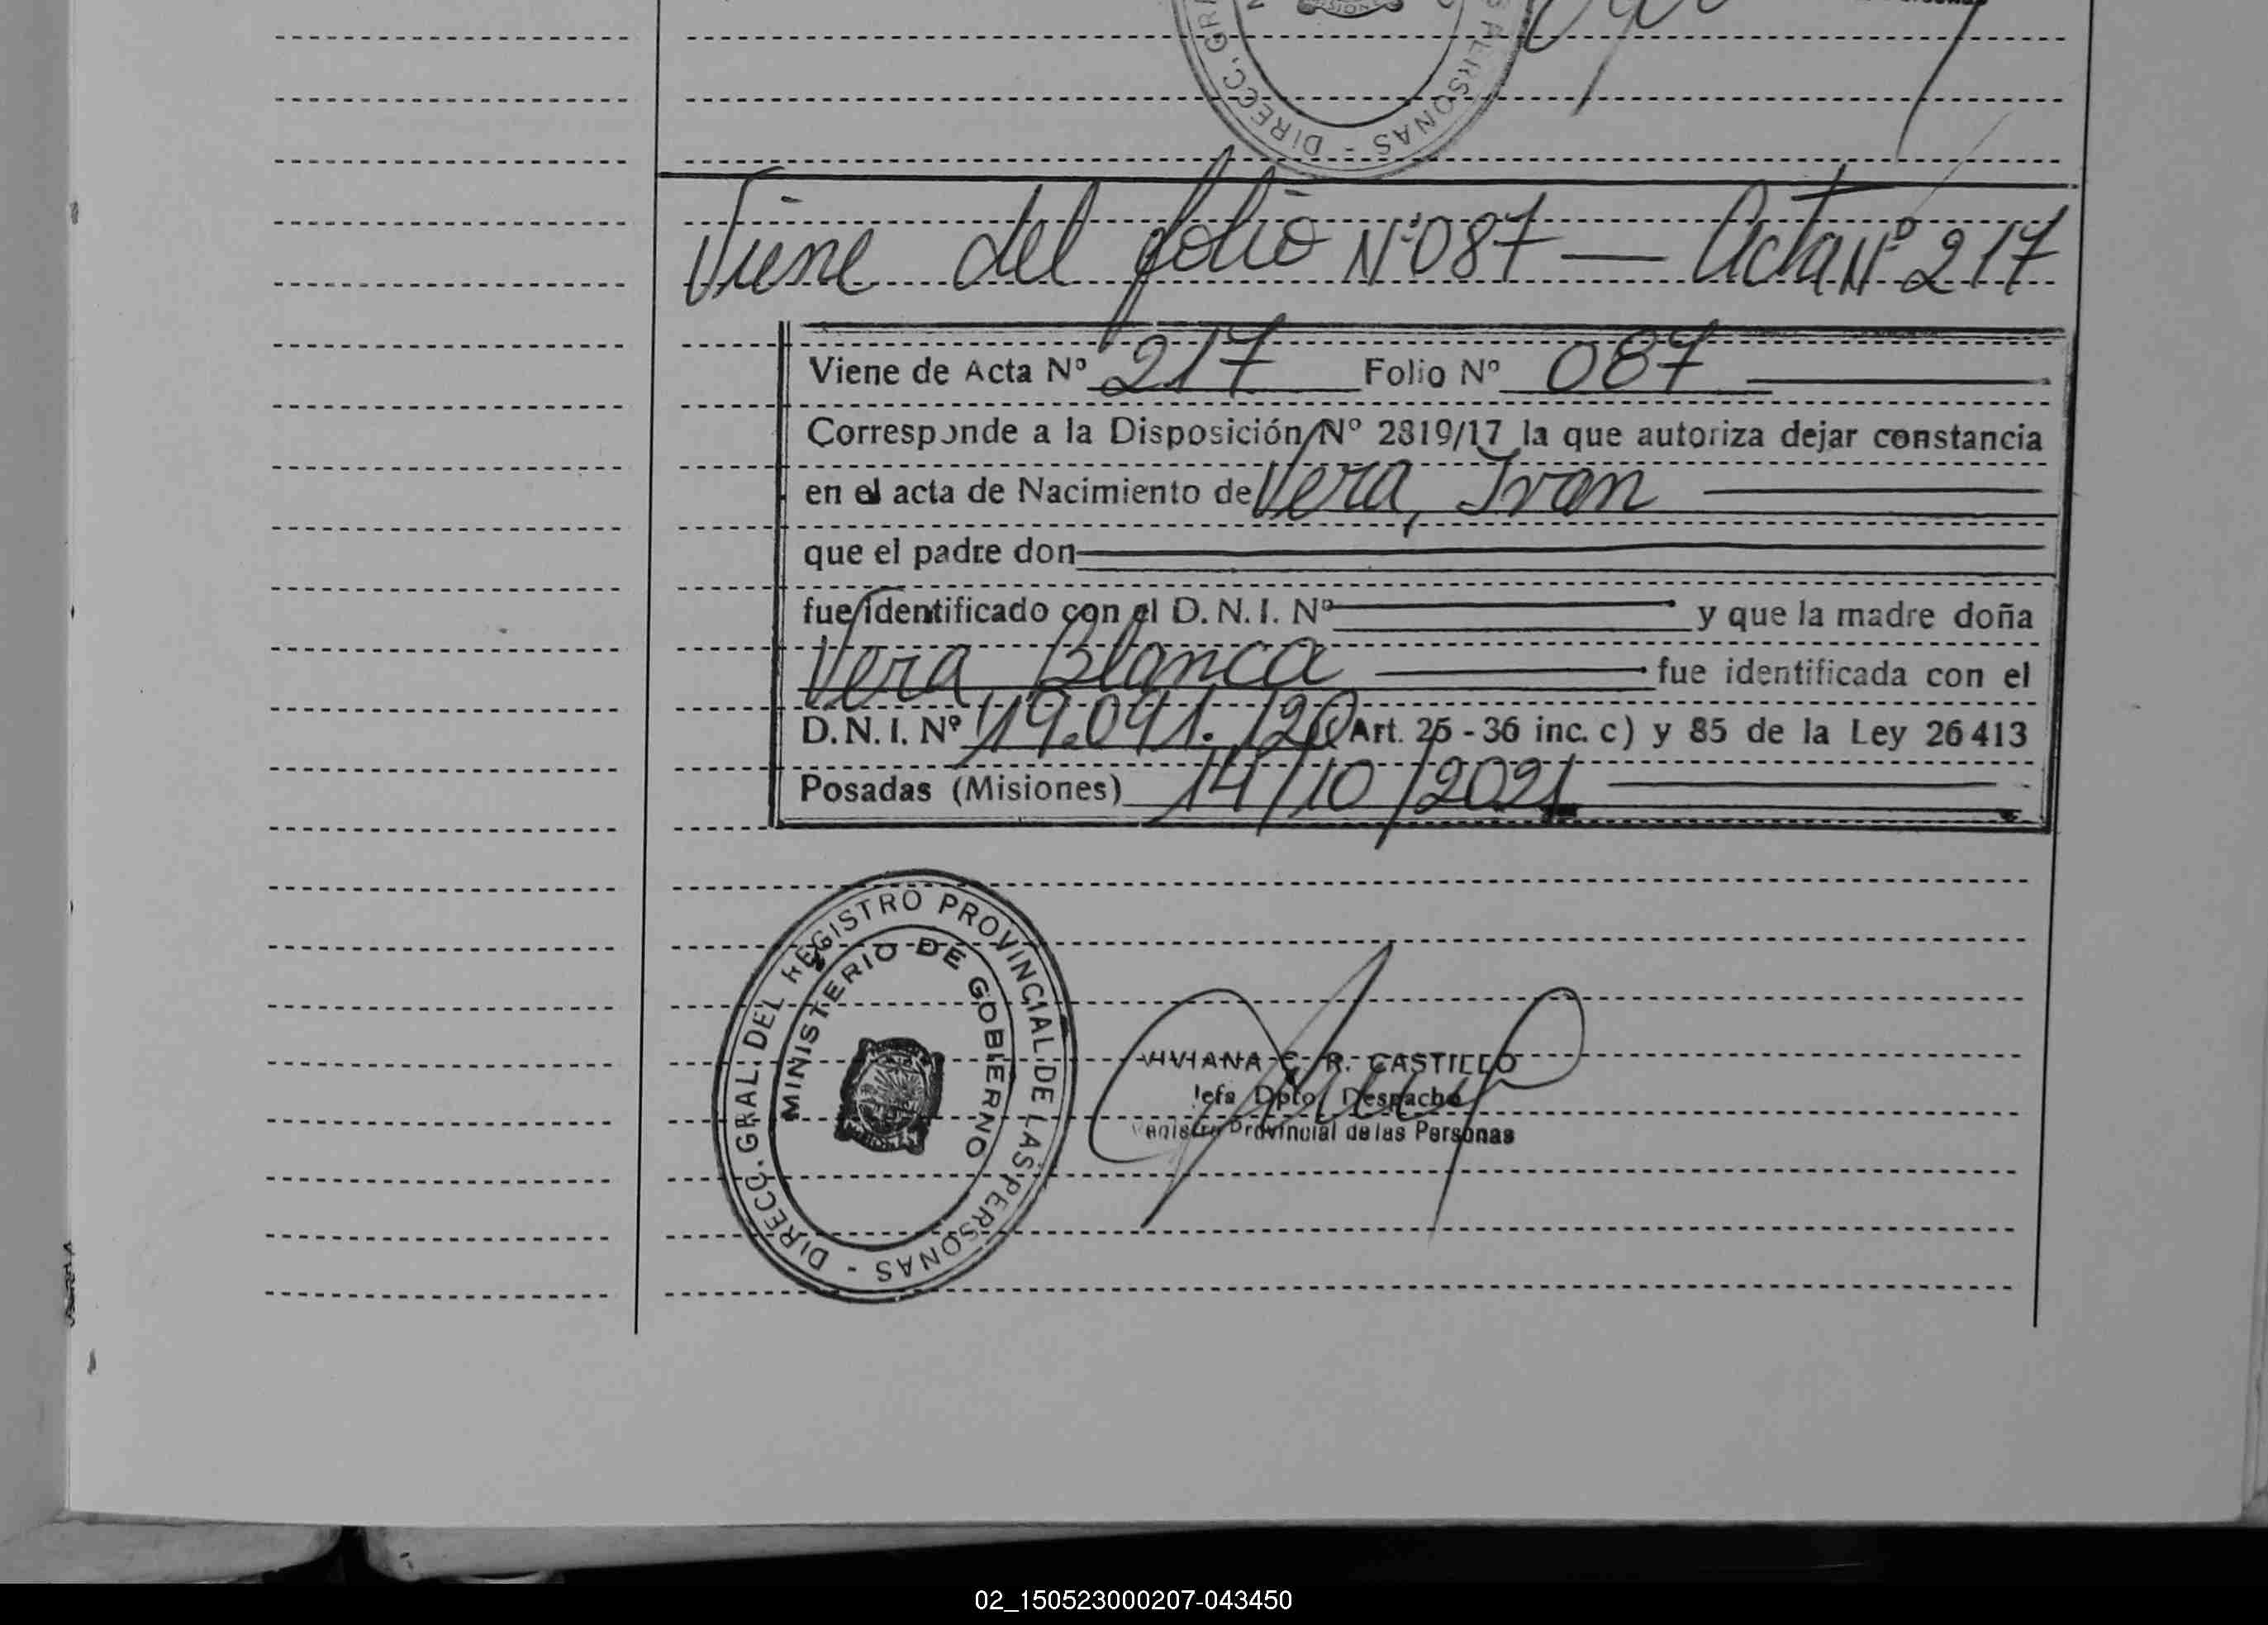 DIRECC. GR
S PERSONAS -
Viene del folio Nº 087 — Acta Nº 217
Viene de Acta Nº 217 Folio Nº 087
Corresponde a la Disposición Nº 2819/17 la que autoriza dejar constancia
en el acta de Nacimiento de Vera, Ivan
que el padre don
fue identificado con el D. N. I. Nº y que la madre doña
Vera Blanca fue identificada con el
D. N. I. Nº 19.091.120 Art. 25 - 36 inc. c) y 85 de la Ley 26413
Posadas (Misiones) 14/10/2021
DIRECC. GRAL. DEL REGISTRO PROVINCIAL DE LAS PERSONAS -
MINISTERIO DE GOBIERNO
VIVIANA C. R. CASTILLO
Jefa Dpto. Despacho
Registro Provincial de las Personas
02_150523000207-043450